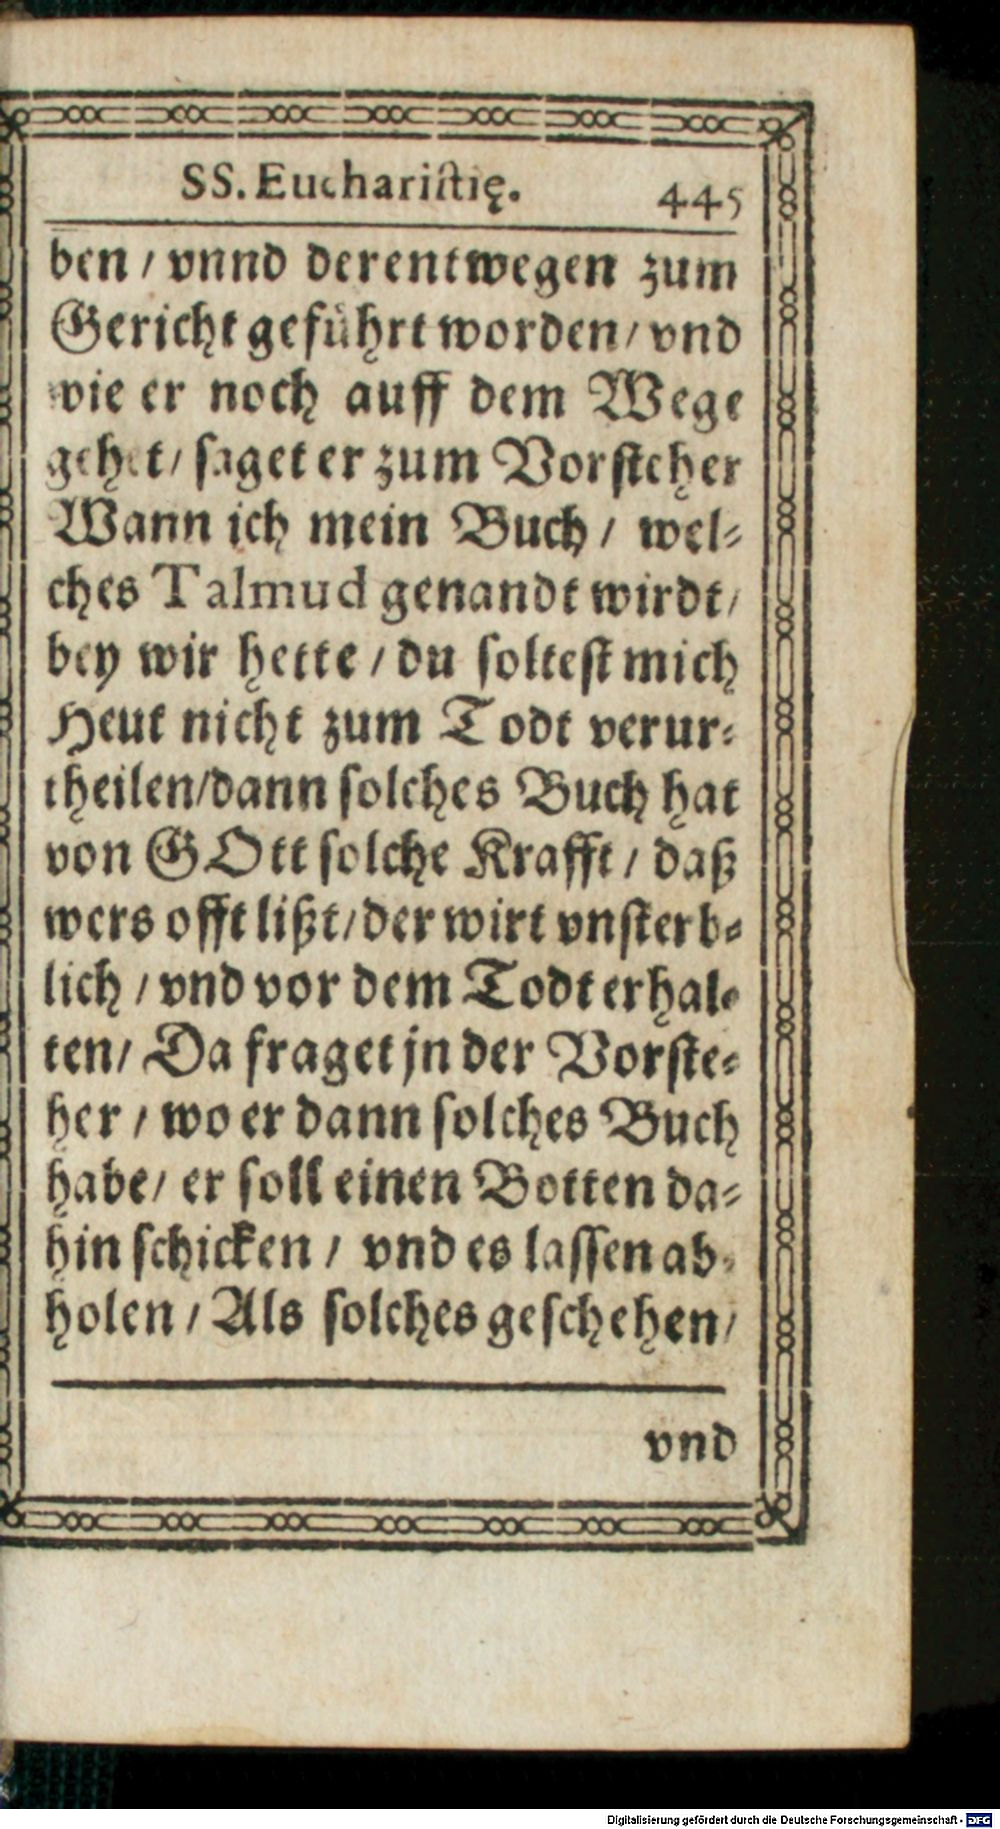 SS. Euchariſtię. 445
ben / vnnd derentwegen zum
Gericht geführt worden / vnd
wie er noch auff dem Wege
gehet / ſaget er zum Vorſteher
Wann ich mein Buch / wel⸗
ches Talmud genandt wirdt /
bey wir hette / du ſolteſt mich
Heut nicht zum Todt verur⸗
theilen / dann ſolches Buch hat
von GOtt ſolche Krafft / daß
wers offt lißt / der wirt vnſterb⸗
lich / vnd vor dem Todt erhal⸗
ten / Da fraget jn der Vorſte⸗
her / wo er dann ſolches Buch
habe / er ſoll einen Botten da⸗
hin ſchicken / vnd es laſſen ab⸗
holen / Als ſolches geſchehen /
vnd
Digitalisierung gefördert durch die Deutsche Forschungsgemeinschaft - DFG